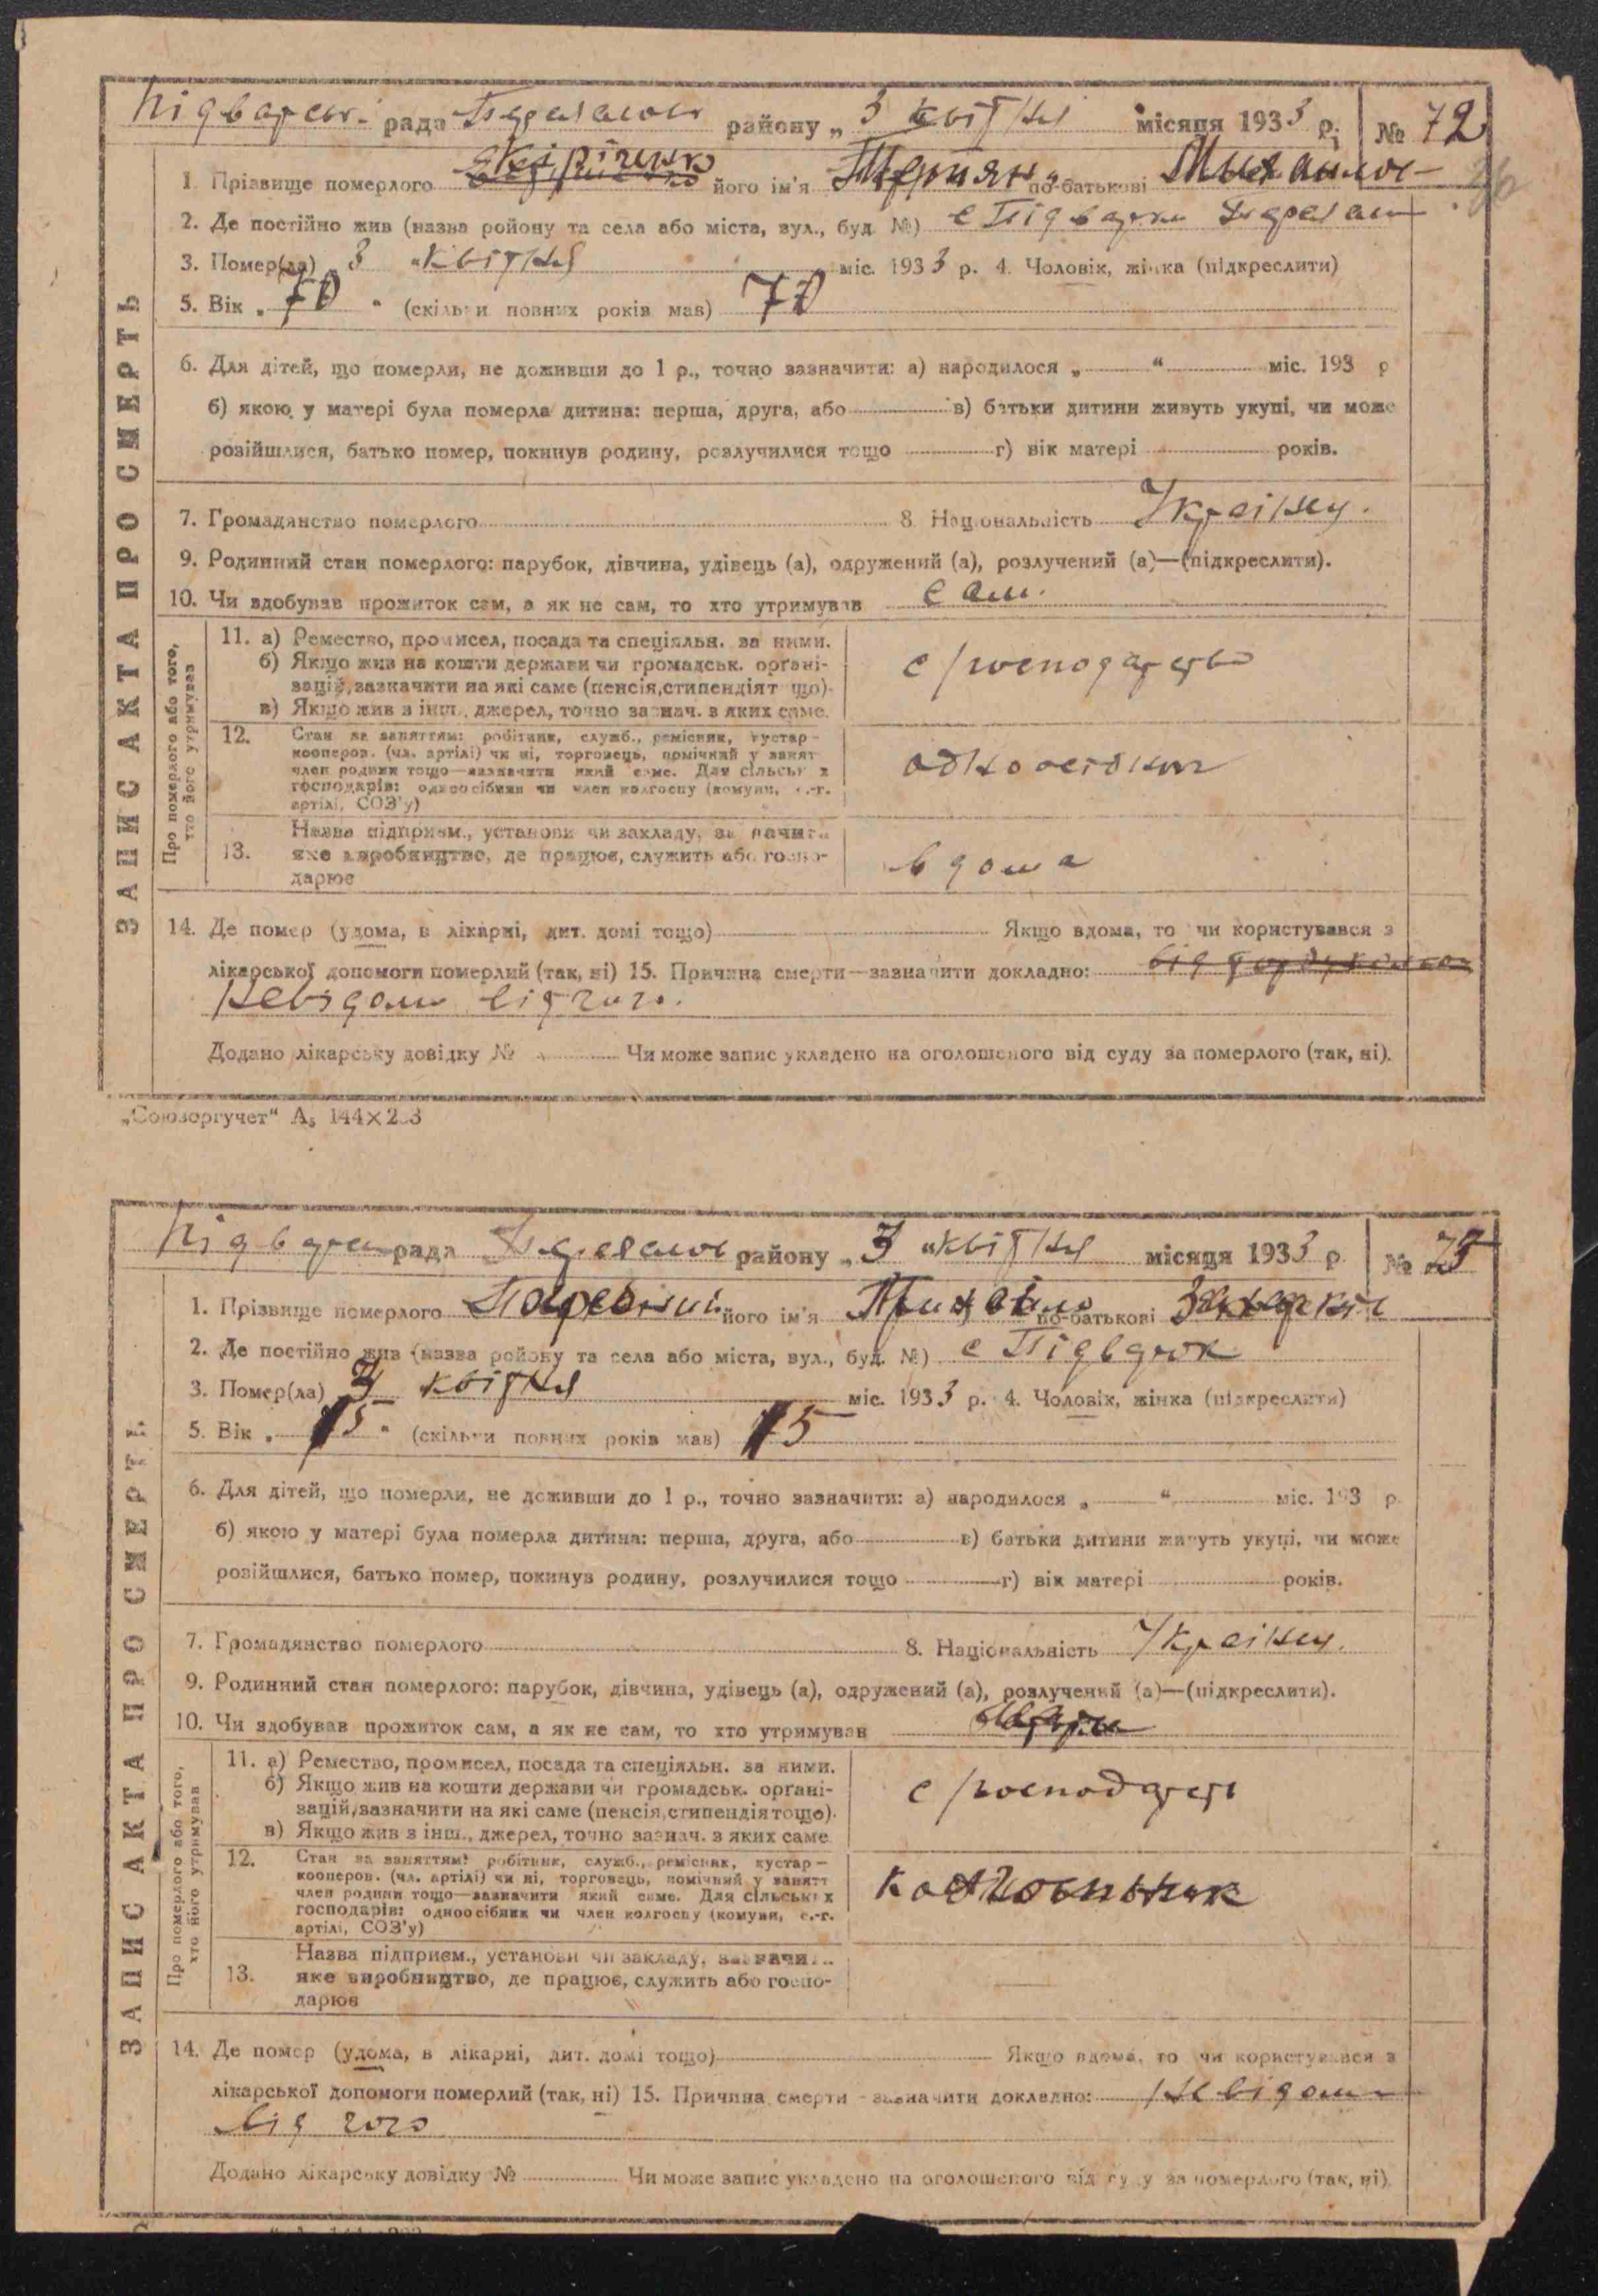 рада району „ 3 квітня місяця 1933 р. № 72
1. Прізвище померлого його ім'я по-батькові
2. Де постійно жив (назва ройону та села або міста, вул., буд. №) с Підварки
3. Помер(ла) 3 „квітня міс. 1933 р. 4. Чоловік, жінка (підкреслити)
5. Вік „ 70 “ (скільки повних років мав) 70
6. Для дітей, що померли, не доживши до 1 р., точно зазначити: а) народилося „ “ міс. 193 р
б) якою у матері була померла дитина: перша, друга, або в) батьки дитини живуть укупі, чи може
розійшлися, батько помер, покинув родину, розлучилися тощо г) вік матері років.
7. Громадянство померлого 8. Національність Україн.
9. Родинний стан померлого: парубок, дівчина, удівець (а), одружений (а), розлучений (а)—(підкреслити).
10. Чи здобував прожиток сам, а як не сам, то хто утримував сам.
ЗАПИС АКТА ПРО СМЕРТЬ
Про померлого або того,
хто його утримував
11. а) Ремество, промисел, посада та спеціяльн. за ними.
б) Якщо жив на кошти держави чи громадськ. органі-
зацій, зазначити на які саме (пенсія, стипендіят що).
в) Якщо жив з інш., джерел, точно зазнач. з яких саме.
с/господарство
12. Стан за заняттям: робітник, служб., ремісник, кустар—
кооперов. (чл. артілі) чи ні, торговець, помічний у занят
член родини тощо—зазначити який саме. Для сільських
господарів: одноосібник чи член колгоспу (комуни, с.-г.
артілі, СОЗ'у)
одноосібник
13. Назва підприєм., установи чи закладу, зазначити
яке виробництво, де працює, служить або госпо-
дарює
вдома
14. Де помер (удома, в лікарні, дит. домі тощо) Якщо вдома, то чи користувався з
лікарської допомоги померлий (так, ні) 15. Причина смерти—зазначити докладно:
Невідомо від чого.
Додано лікарську довідку № Чи може запис укладено на оголошеного від суду за померлого (так, ні).
„Союзоргучет“ А₅ 144×203
рада району „ 3 „квітня місяця 1933 р № 73
1. Прізвище померлого його ім'я по-батькові
2. Де постійно жив (назва ройону та села або міста, вул., буд. №) с Підварок
3. Помер(ла) 3 квітня міс. 1933 р. 4. Чоловік, жінка (підкреслити)
5. Вік „ 15 “ (скільки повних років мав) 15
6. Для дітей, що померли, не доживши до 1 р., точно зазначити: а) народилося „ “ міс. 193 р.
б) якою у матері була померла дитина: перша, друга, або в) батьки дитини живуть укупі, чи може
розійшлися, батько помер, покинув родину, розлучилися тощо г) вік матері років.
7. Громадянство померлого 8. Національність Україн.
9. Родинний стан померлого: парубок, дівчина, удівець (а), одружений (а), розлучений (а)—(підкреслити).
10. Чи здобував прожиток сам, а як не сам, то хто утримував
ЗАПИС АКТА ПРО СМЕРТЬ
Про померлого або того,
хто його утримував
11. а) Ремество, промисел, посада та спеціяльн. за ними.
б) Якщо жив на кошти держави чи громадськ. органі-
зацій, зазначити на які саме (пенсія, стипендія тощо).
в) Якщо жив з інш., джерел, точно зазнач. з яких саме
с/господарст
12. Стан за заняттям: робітник, служб., ремісник, кустар—
кооперов. (чл. артілі) чи ні, торговець, помічний у занятт
член родини тощо—зазначити який саме. Для сільських
господарів: одноосібник чи член колгоспу (комуни, с.-г.
артілі, СОЗ'у)
13. Назва підприєм., установи чи закладу, зазначи
яке виробництво, де працює, служить або госпо-
дарює
14. Де помер (удома, в лікарні, дит. домі тощо) Якщо вдома, то чи користувався з
лікарської допомоги померлий (так, ні) 15. Причина смерти - зазначити докладно: Невідомо
від чого
Додано лікарську довідку № Чи може запис укладено на оголошеного від суду за померлого (так, ні).